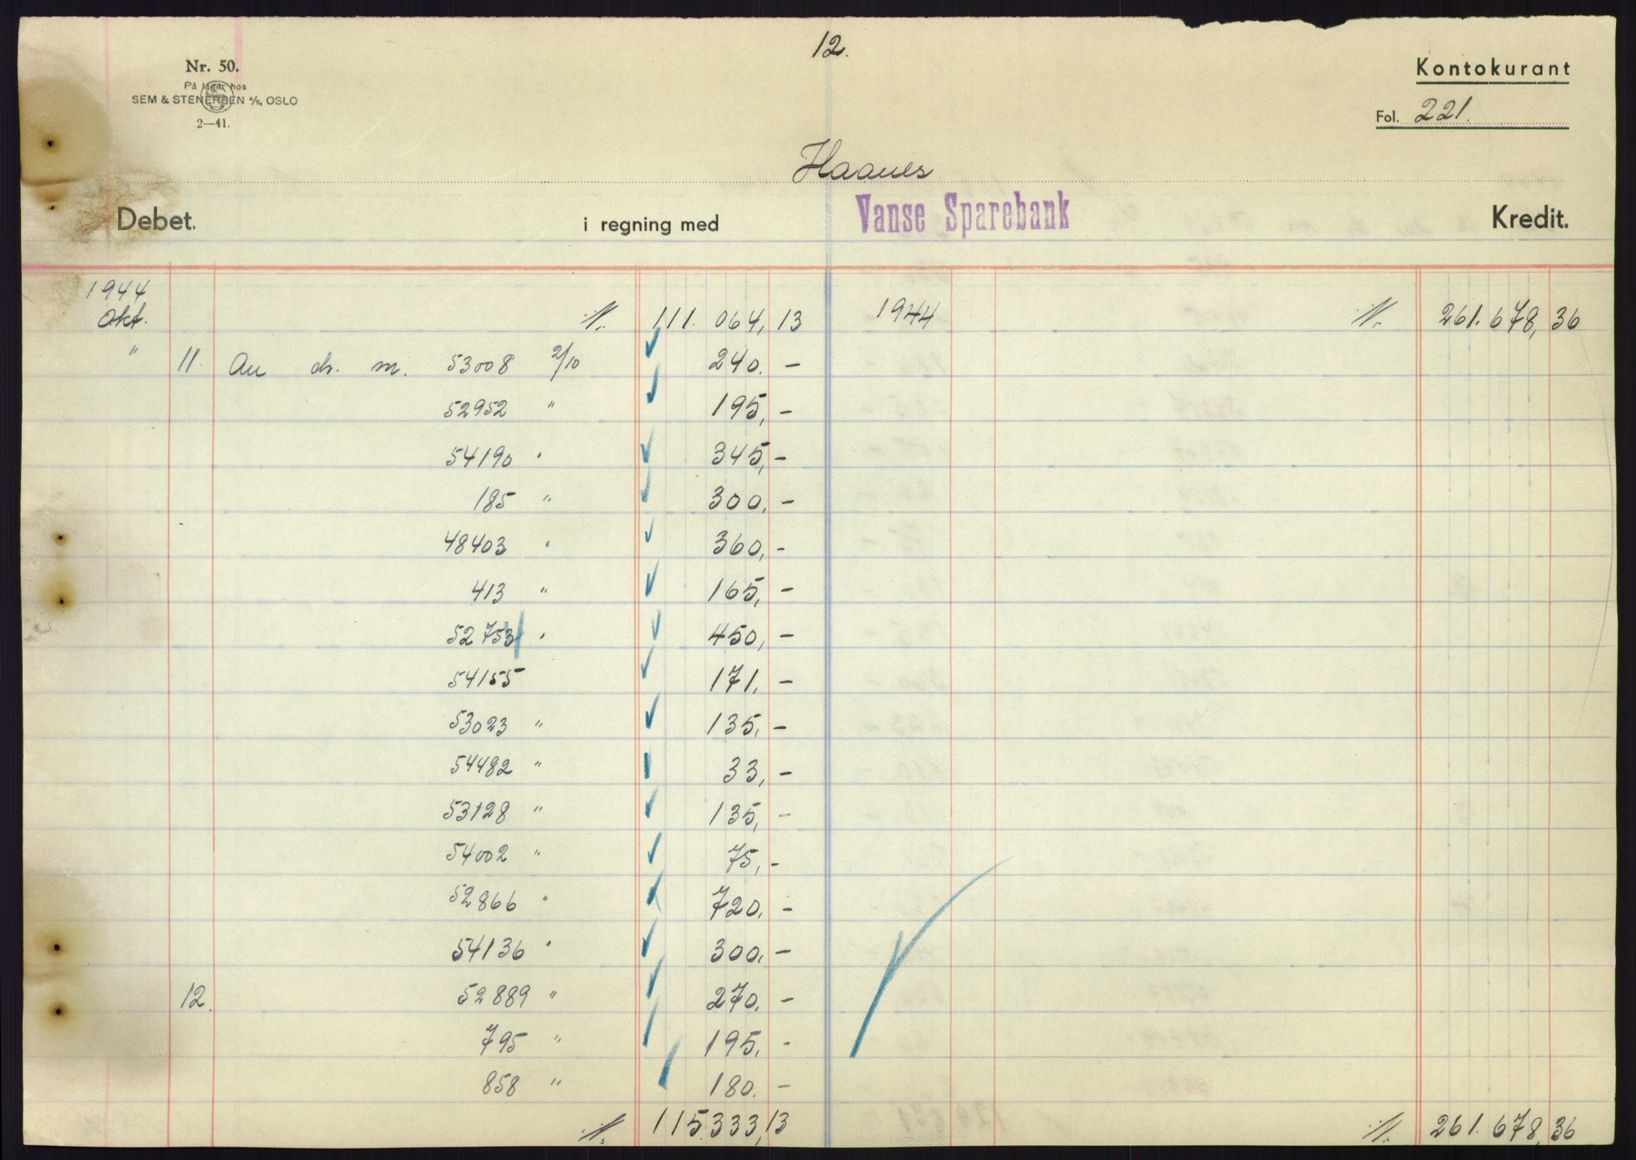 12.
Nr. 50.
På lager hos
SEM & STENERSEN A/S, OSLO
2—41.
Kontokurant
Fol. 221.
Haanes
Debet. i regning med Vanse Sparebank Kredit.
1944
Okt. 111.064,13 1944 261.678,36
" 11. An ch. m. 53008 2/10 240. –
52952 " 195, –
54190 " 345, –
185 " 300, –
48403 " 360, –
413 " 165, –
52753 " 450, –
54155 171. –
53023 " 135, –
54482 " 33, –
53128 " 135, –
54002 " 75, –
52866 " 720, –
54136 " 300, –
12. 52889 " 270. –
795 " 195. –
858 " 180. –
115.333,13 261.678,36